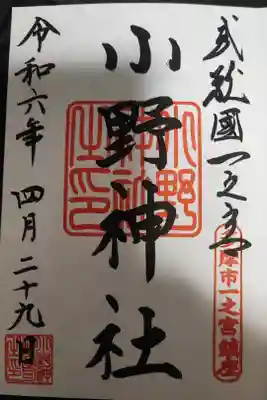 武蔵國一之宮
多摩市一之宮鎮座
小野神社
小野神社之印
令和六年 四月二十九日